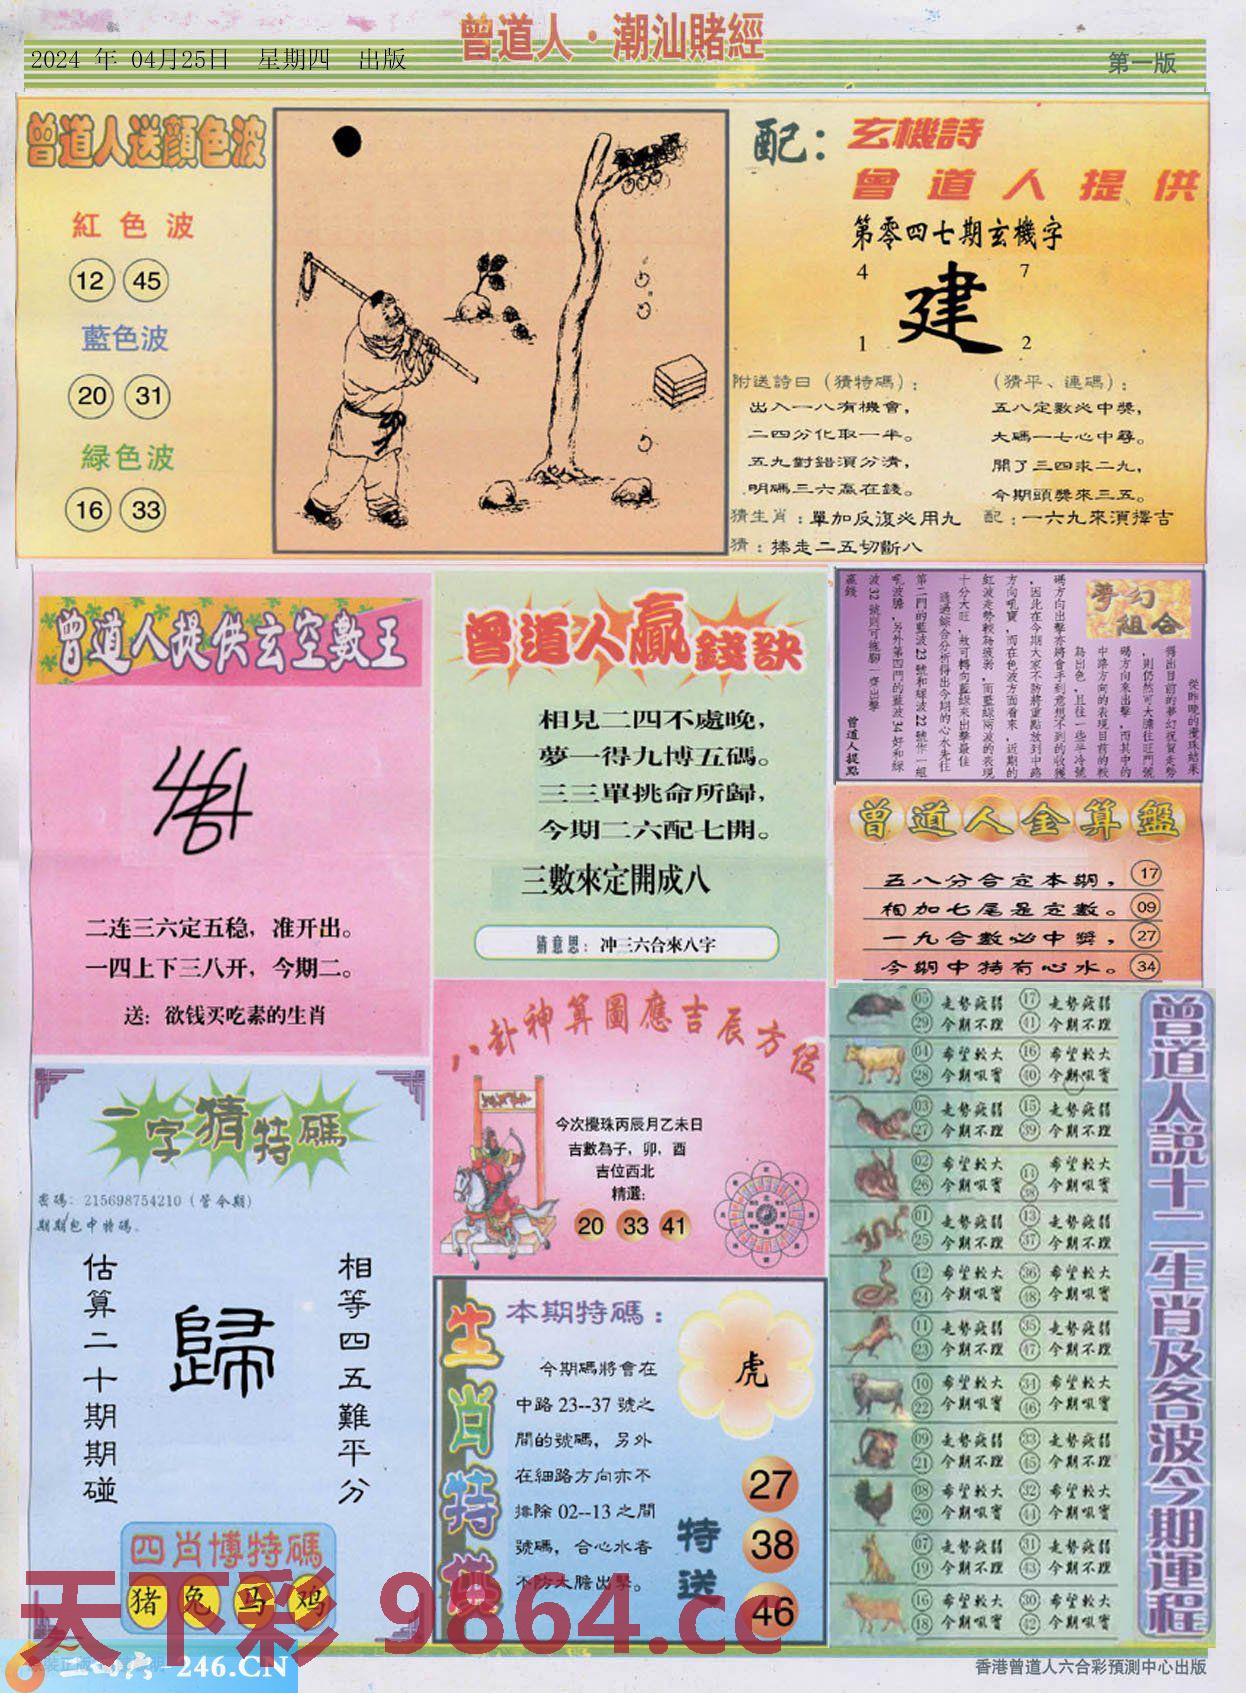 曾道人·潮汕賭經
2024 年 04月25日 星期四 出版
第一版
曾道人送顔色波
紅色波
12 45
藍色波
20 31
緑色波
16 33
配：
玄機詩
曾道人提供
第零四七期玄機字
4 7
建
1 2
附送詩曰（猜特碼）：
出入一八有機會，
二四分化取一半。
五九對錯須分清，
明碼三六贏在錢。
（猜平、連碼）：
五八定數必中獎，
大碼一七心中尋。
開了三四求二九，
今期頭獎來三五。
猜生肖：單加反復必用九
配：一六九來須擇吉
猜：揍走二五切斷八
曾道人提供玄空數王
二连三六定五稳，准开出。
一四上下三八开，今期二。
送：欲钱买吃素的生肖
曾道人贏錢訣
相見二四不處晚，
夢一得九博五碼。
三三單挑命所歸，
今期二六配七開。
三數來定開成八
猜意思：冲三六合來八字
夢幻
組合
從昨晚的攪珠結果
得出目前的夢幻祝賀走勢
，則仍然可大膽往旺門號
碼方向來出擊，而其中的
中路方向的表現目前的較
為出色，且往一些半冷號
碼方向出擊亦將會手到意想不到的收獲
，因此在今期大家不防將重點放到中路
方向吼寶，而在色波方面看來，近期的
紅波走勢較為疲弱，而藍綠兩波的表現
十分大旺，故可轉向藍綠來出擊最佳
通過綜合分析得出今期的心水先往
第二門的藍波23號和綠波22號作一組
吼波膽，另外第四門的藍波34好和綠
波32號則可拖腳一齊出擊
贏錢
曾道人提點
曾道人金算盤
五八分合定本期， 17
相加七尾是定數。 09
一九合數必中獎， 27
今期中特有心水。 34
八卦神算圖應吉辰方位
今次攪珠丙辰月乙未日
吉數為子，卯，酉
吉位西北
精選：
20 33 41
一字猜特碼
密碼：215698754210（管令期）
期期包中特碼.
估算二十期期碰
歸
相等四五難平分
四肖博特碼
猪 兔 马 鸡
生肖特供
本期特碼：
今期碼將會在
中路 23--37 號之
間的號碼，另外
在細路方向亦不
排除 02--13 之間
號碼，合心水者
不防大膽出擊。
虎
特送
27
38
46
曾道人説十二生肖及各波今期運程
05 走勢疲弱 17 走勢疲弱
29 今期不理 41 今期不理
04 希望較大 16 希望較大
28 今期吼實 40 今期吼實
03 走勢疲弱 15 走勢疲弱
27 今期不理 39 今期不理
02 希望較大 14 希望較大
26 今期吼實 38 今期吼實
01 走勢疲弱 13 走勢疲弱
25 今期不理 37 今期不理
12 希望較大 36 希望較大
24 今期吼實 48 今期吼實
11 走勢疲弱 35 走勢疲弱
23 今期不理 47 今期不理
10 希望較大 34 希望較大
22 今期吼實 46 今期吼實
09 走勢疲弱 33 走勢疲弱
21 今期不理 45 今期不理
08 希望較大 32 希望較大
20 今期吼實 44 今期吼實
07 走勢疲弱 31 走勢疲弱
19 今期不理 43 今期不理
16 希望較大 30 希望較大
18 今期吼實 42 今期吼實
天下彩 9864.cc
二四六-246.CN
香港曾道人六合彩預測中心出版